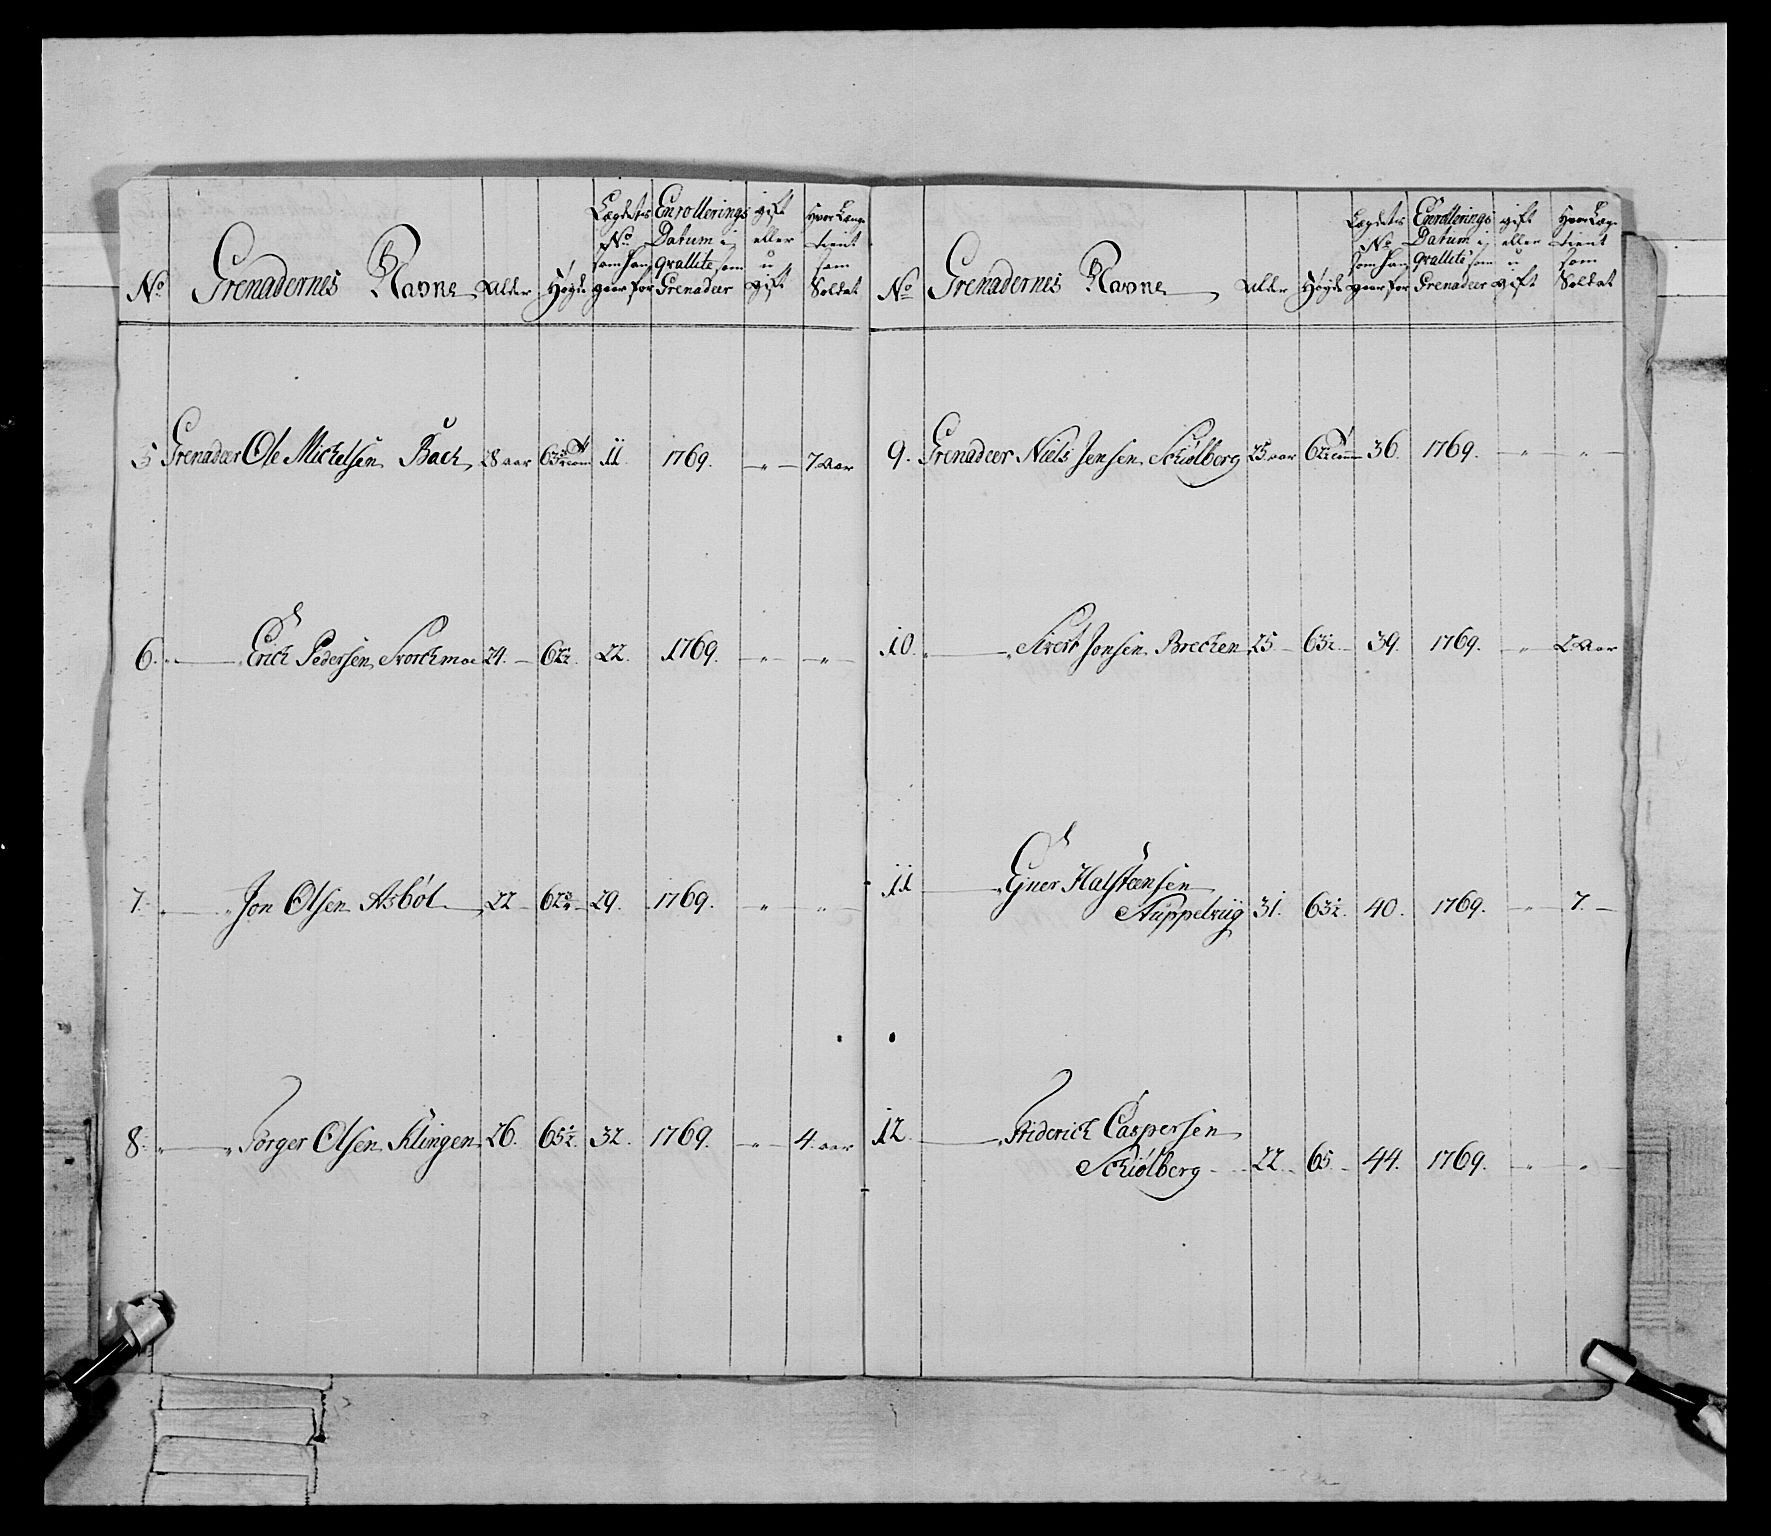 No Grenadernes Navne Alder Høyde Lægdets No som han gaar for Enrollerings Datum i qvallite som Grenadeer gift eller u gift Hvor Længe tient som Soldat
5 Grenadeer Ole Michelsen Bach 28 aar 63 11 1769. „ 7 aar
6. „ Erich Pedersen Storchmoe 24. 62 22. 1769. „ „
7. „ Jon Olsen Asbøl 22 62 29. 1769. „ „
8. „ Børger Olsen Klingen 26. 65½ 32. 1769. „ 4. aar
No Grenadernes Navne Alder Høyde Lægdets No som han gaar for Enrollerings Datum i qvallite som Grenadeer gift eller u gift Hvor Længe tient som Soldat
9. Grenadeer Niels Jensen Schiølberg 25 aar 36. 1769. „ „
10. „ Sivert Jonsen Brechen 25 63½ 39. 1769. „ 2 aar
11 „ Ejner Halstensen
Stuppelrüg 31. 63½. 40. 1769. „ 7.
12. „ Friderich Caspersen
Schiølberg 22 65 44. 1769. „ „